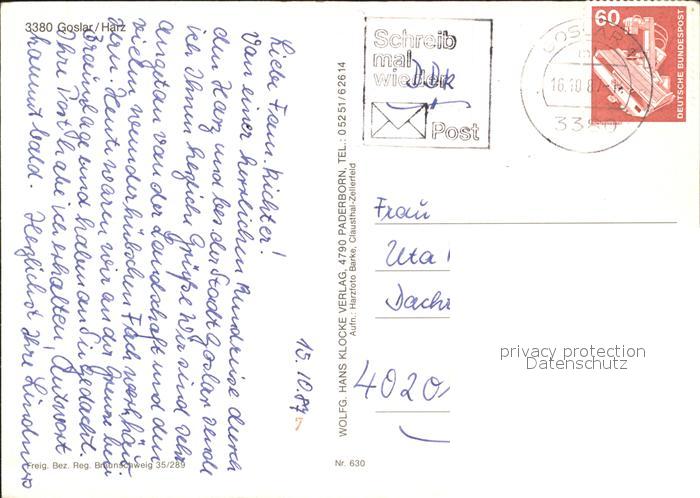 3380 Goslar/Harz
Liebe Frau Richter!
Von einer herrlichen Rundreise durch
den Harz und bes. der Stadt Goslar sende
ich Ihnen herzliche Grüße. Wir sind sehr
angetan von der Landschaft und den
vielen wunderhübschen Fachwerkhäu-
sern. Heute waren wir an der Grenze bei
Braunlage und haben an Sie gedacht.
Ihre Post habe ich erhalten, Antwort
kommt bald. Herzlichst Ihre
15.10.87
7
Freig. Bez. Reg. Braunschweig 35/289
Nr. 630
WOLFG. HANS KLOCKE VERLAG, 4790 PADERBORN, TEL.: 0 52 51 / 6 26 14
Aufn.: Harzfoto Barke, Clausthal-Zellerfeld
Schreib
mal
wieder
Post
GOSLAR
16.10.87
3380
60
DEUTSCHE BUNDESPOST
Frau
Uta
Dachs
4020
privacy protection
Datenschutz